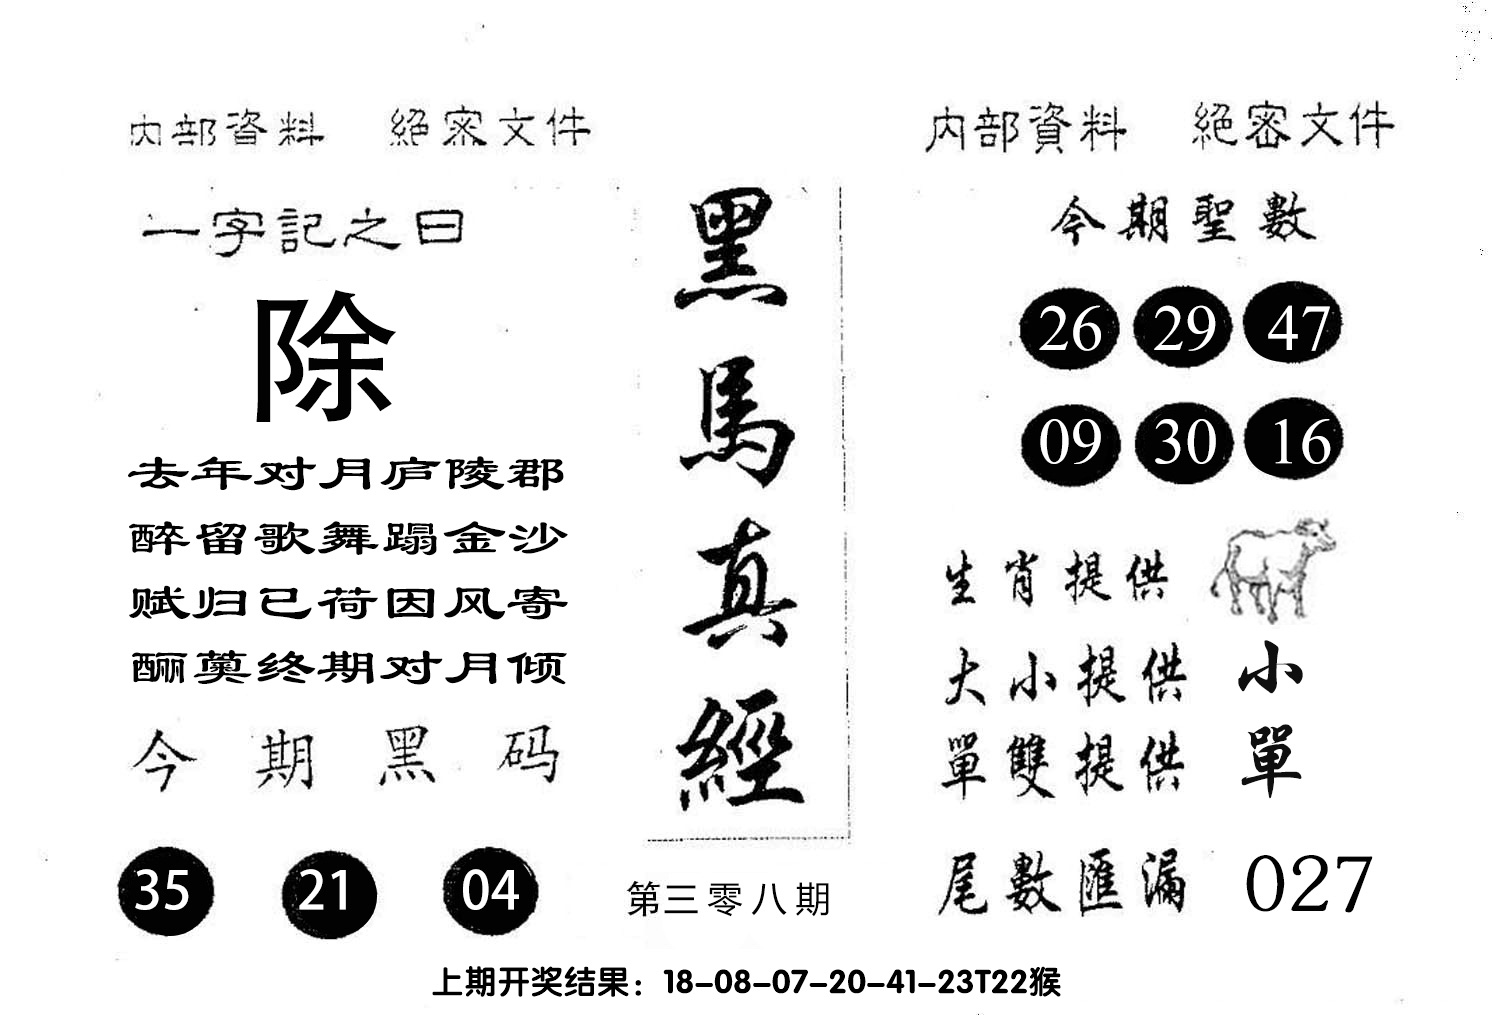 内部資料 絕密文件
一字記之曰
除
去年对月庐陵郡
醉留歌舞蹋金沙
赋归已荷因风寄
酾藇终期对月倾
今期黑码
35 21 04
黑馬真經
第三零八期
内部資料 絕密文件
今期聖數
26 29 47
09 30 16
生肖提供
大小提供 小
單雙提供 單
尾數匯漏 027
上期开奖结果：18-08-07-20-41-23T22猴